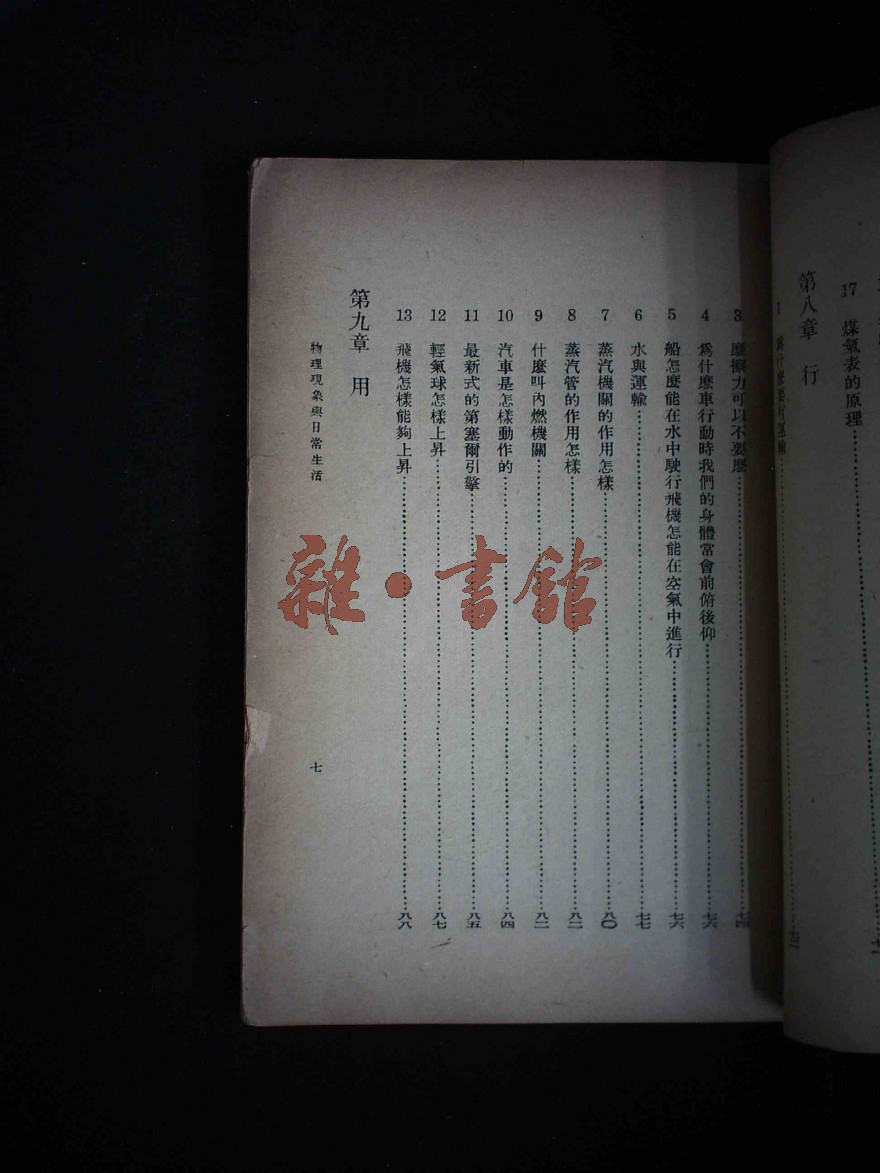 17 煤氣表的原理
第八章 行
1 爲什麼要有運輸
3 磨擦力可以不要麼 七四
4 爲什麼車行動時我們的身體常會前俯後仰 七六
5 船怎麼能在水中駛行飛機怎能在空氣中進行 七六
6 水與運輸 七七
7 蒸汽機關的作用怎樣 八〇
8 蒸汽管的作用怎樣 八二
9 什麼叫內燃機關 八二
10 汽車是怎樣動作的 八四
11 最新式的第塞爾引擎 八五
12 輕氣球怎樣上昇 八七
13 飛機怎樣能夠上昇 八八
第九章 用
物理現象與日常生活
七
雜·書館